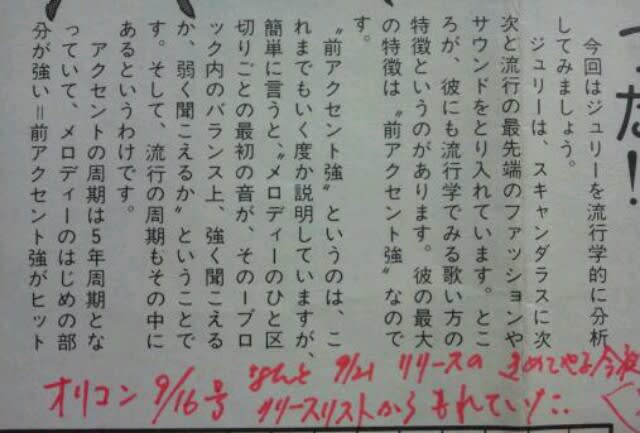 った！
今回はジュリーを流行学的に分析
してみましょう。
ジュリーは、スキャンダラスに次
次と流行の最先端のファッションや
サウンドをとり入れています。とこ
ろが、彼にも流行学でみる歌い方の
特徴というのがあります。彼の最大
の特徴は〝前アクセント強〟なので
す。
〝前アクセント強〟というのは、こ
れまでもいく度か説明していますが、
簡単に言うと、〝メロディーのひと区
切りごとの最初の音が、その一ブロ
ック内のバランス上、強く聞こえる
か、弱く聞こえるか〟ということで
す。そして、流行の周期もその中に
あるというわけです。
アクセントの周期は5年周期とな
っていて、メロディーのはじめの部
分が強い＝前アクセント強がヒット
なんと 9/21 リリースの きめてやる今夜
オリコン 9/16号 リリースリストから もれていた